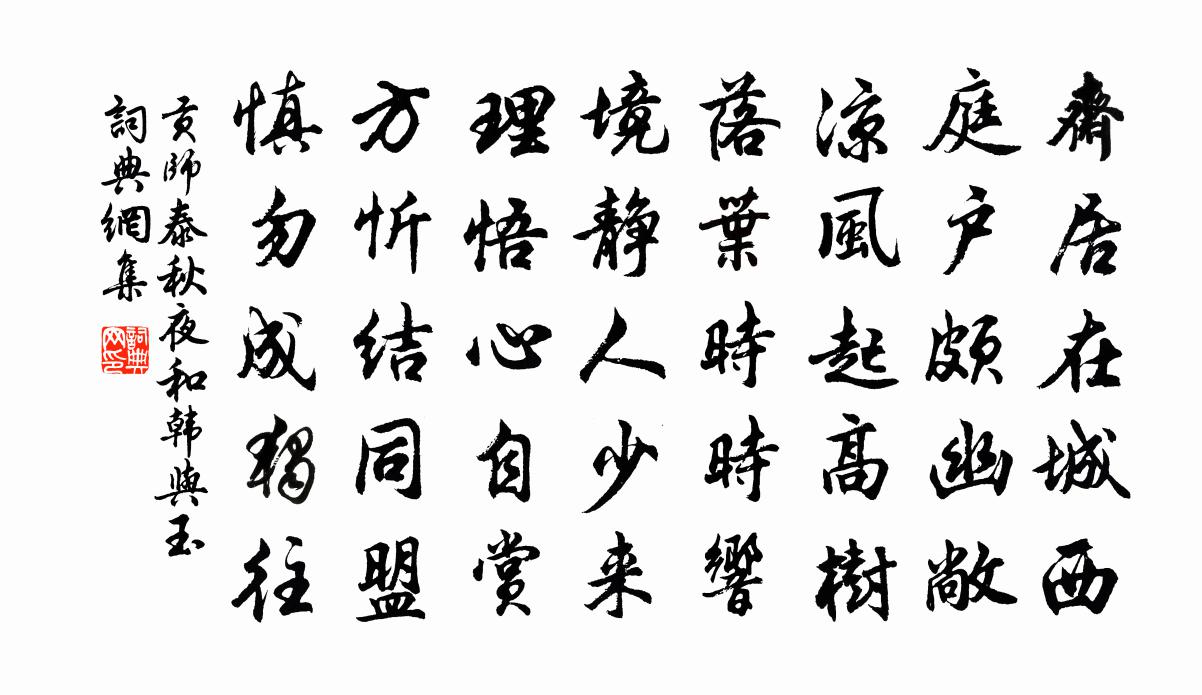 齋居在城西
庭户頗幽敞
涼風起高樹
落葉時時響
境静人少来
理悟心自賞
方忻结同盟
慎勿成獨往
贡師泰秋夜和韩與玉
詞典網集
詞典网印